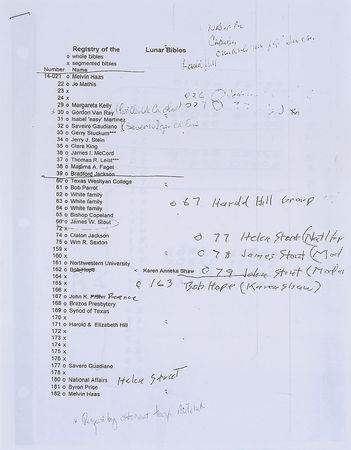 Registry of the Lunar Bibles
o whole bibles
x segmented bibles
Number Name
14-021 o Melvin Haas
22 o Jo Mathis
23 x
24 x
29 o Margareta Kelly
30 o Gordon Van Ray
31 o Isabel 'easy' Martinez
32 o Saveiro Gaudiano
33 o Gerry Stuckum***
34 o Jerry J. Stein
35 o Clara King
36 o James I. McCord
37 o Thomas R. Leist***
38 o Maxime A. Faget
39 o Bradford Jackson
60 o Texas Wesleyan College
61 o Bob Parrot
62 o White family
63 o White family
64 o White family
65 o Bishop Copeland
66 o James W. Stout
72 x
74 o Claton Jackson
75 o Wm R. Sexton
159
160
161 o Northwestern University
162 o Bob Hope Karen Anneka Shaw
163 x
164 x
165 x
166 x
167 o John K. Pearce
168 o Brazos Presbytery
169 o Synod of Texas
170 x
171 o Harold & Elizabeth Hill
172 x
173 x
174 x
175 x
176 x
177 o Savero Guadiano
178 x
180 o National Affairs Helen Street
181 o Byron Price
182 o Melvin Haas
o 67 Harold Hill Group
o 77 Helen Stout
o 78 James Stout
o 79 Stout
o 163 Bob Hope (Karen Shaw)